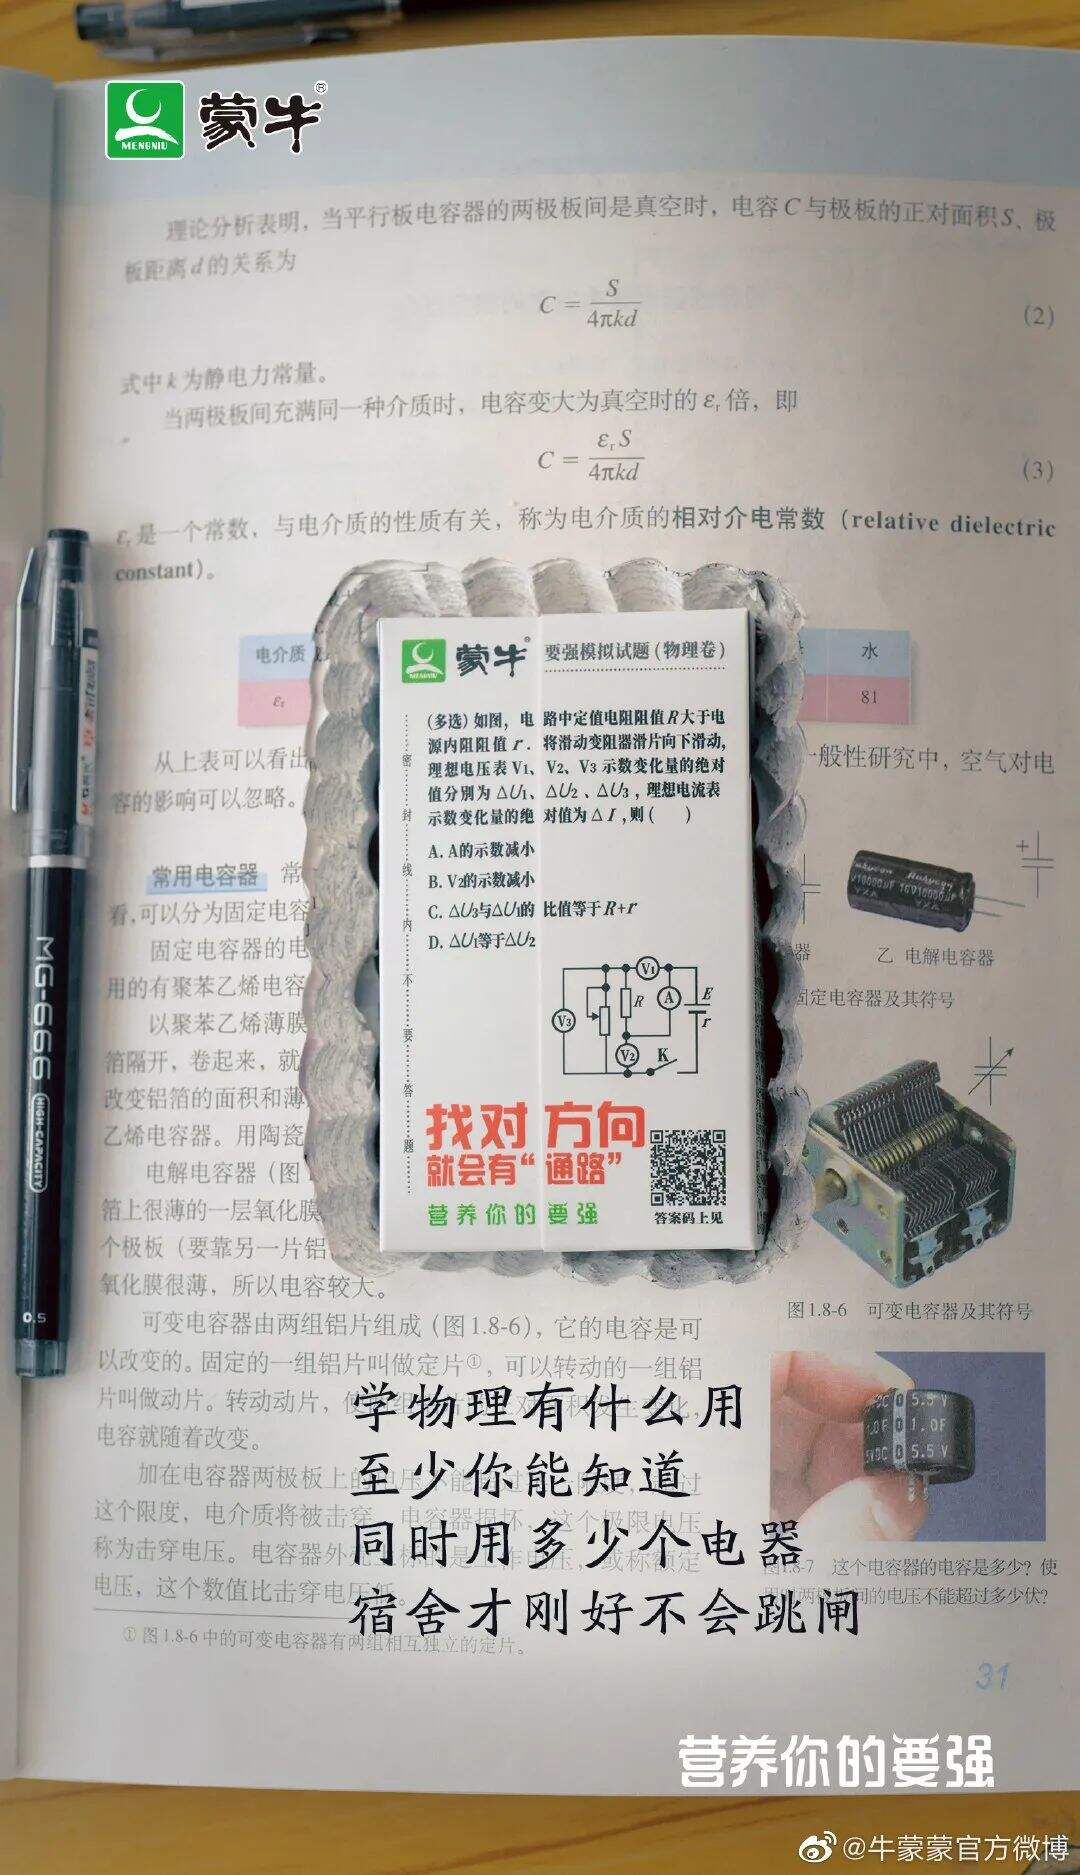 MENGNIU
蒙牛®
理论分析表明，当平行板电容器的两极板间是真空时，电容C与极板的正对面积S、极
板距离d的关系为
C = S/4πkd (2)
式中k为静电力常量。
当两极板间充满同一种介质时，电容变大为真空时的εr倍，即
C = εrS/4πkd (3)
εr是一个常数，与电介质的性质有关，称为电介质的相对介电常数（relative dielectric
constant）。
电介质
水
εr
81
从上表可以看出
一般性研究中，空气对电
容的影响可以忽略。
常用电容器 常
看，可以分为固定电容
固定电容器的电
用的有聚苯乙烯电容
以聚苯乙烯薄膜
箔隔开，卷起来，就
改变铝箔的面积和薄
乙烯电容器。用陶瓷
电解电容器（图
箔上很薄的一层氧化膜
个极板（要靠另一片铝
氧化膜很薄，所以电容较大。
可变电容器由两组铝片组成（图1.8-6），它的电容是可
以改变的。固定的一组铝片叫做定片①，可以转动的一组铝
片叫做动片。转动动片，使
电容就随着改变。
加在电容器两极板上的
这个限度，电介质将被击穿
称为击穿电压。电容器外壳
电压，这个数值比击穿电压低。
①图1.8-6中的可变电容器有两组相互独立的定片。
器
乙 电解电容器
固定电容器及其符号
图1.8-6 可变电容器及其符号
5.5 V
1.0F
5.5 V
1.8-7 这个电容器的电容是多少？使
两极板间的电压不能超过多少伏？
31
MG-666
HIGH-CAPACITY
0.5
MENGNIU
蒙牛® 要强模拟试题（物理卷）
密封线内不要答题
（多选）如图，电路中定值电阻阻值R大于电
源内阻阻值r．将滑动变阻器滑片向下滑动，
理想电压表V1、V2、V3示数变化量的绝对
值分别为△U1、△U2、△U3，理想电流表
示数变化量的绝对值为△I，则（ ）
A. A的示数减小
B. V2的示数减小
C. △U3与△U1的比值等于R+r
D. △U1等于△U2
V1
V3
R
A
E
r
V2
K
找对方向
就会有“通路”
营养你的要强
答案码上见
学物理有什么用
至少你能知道
同时用多少个电器
宿舍才刚好不会跳闸
营养你的要强
@牛蒙蒙官方微博